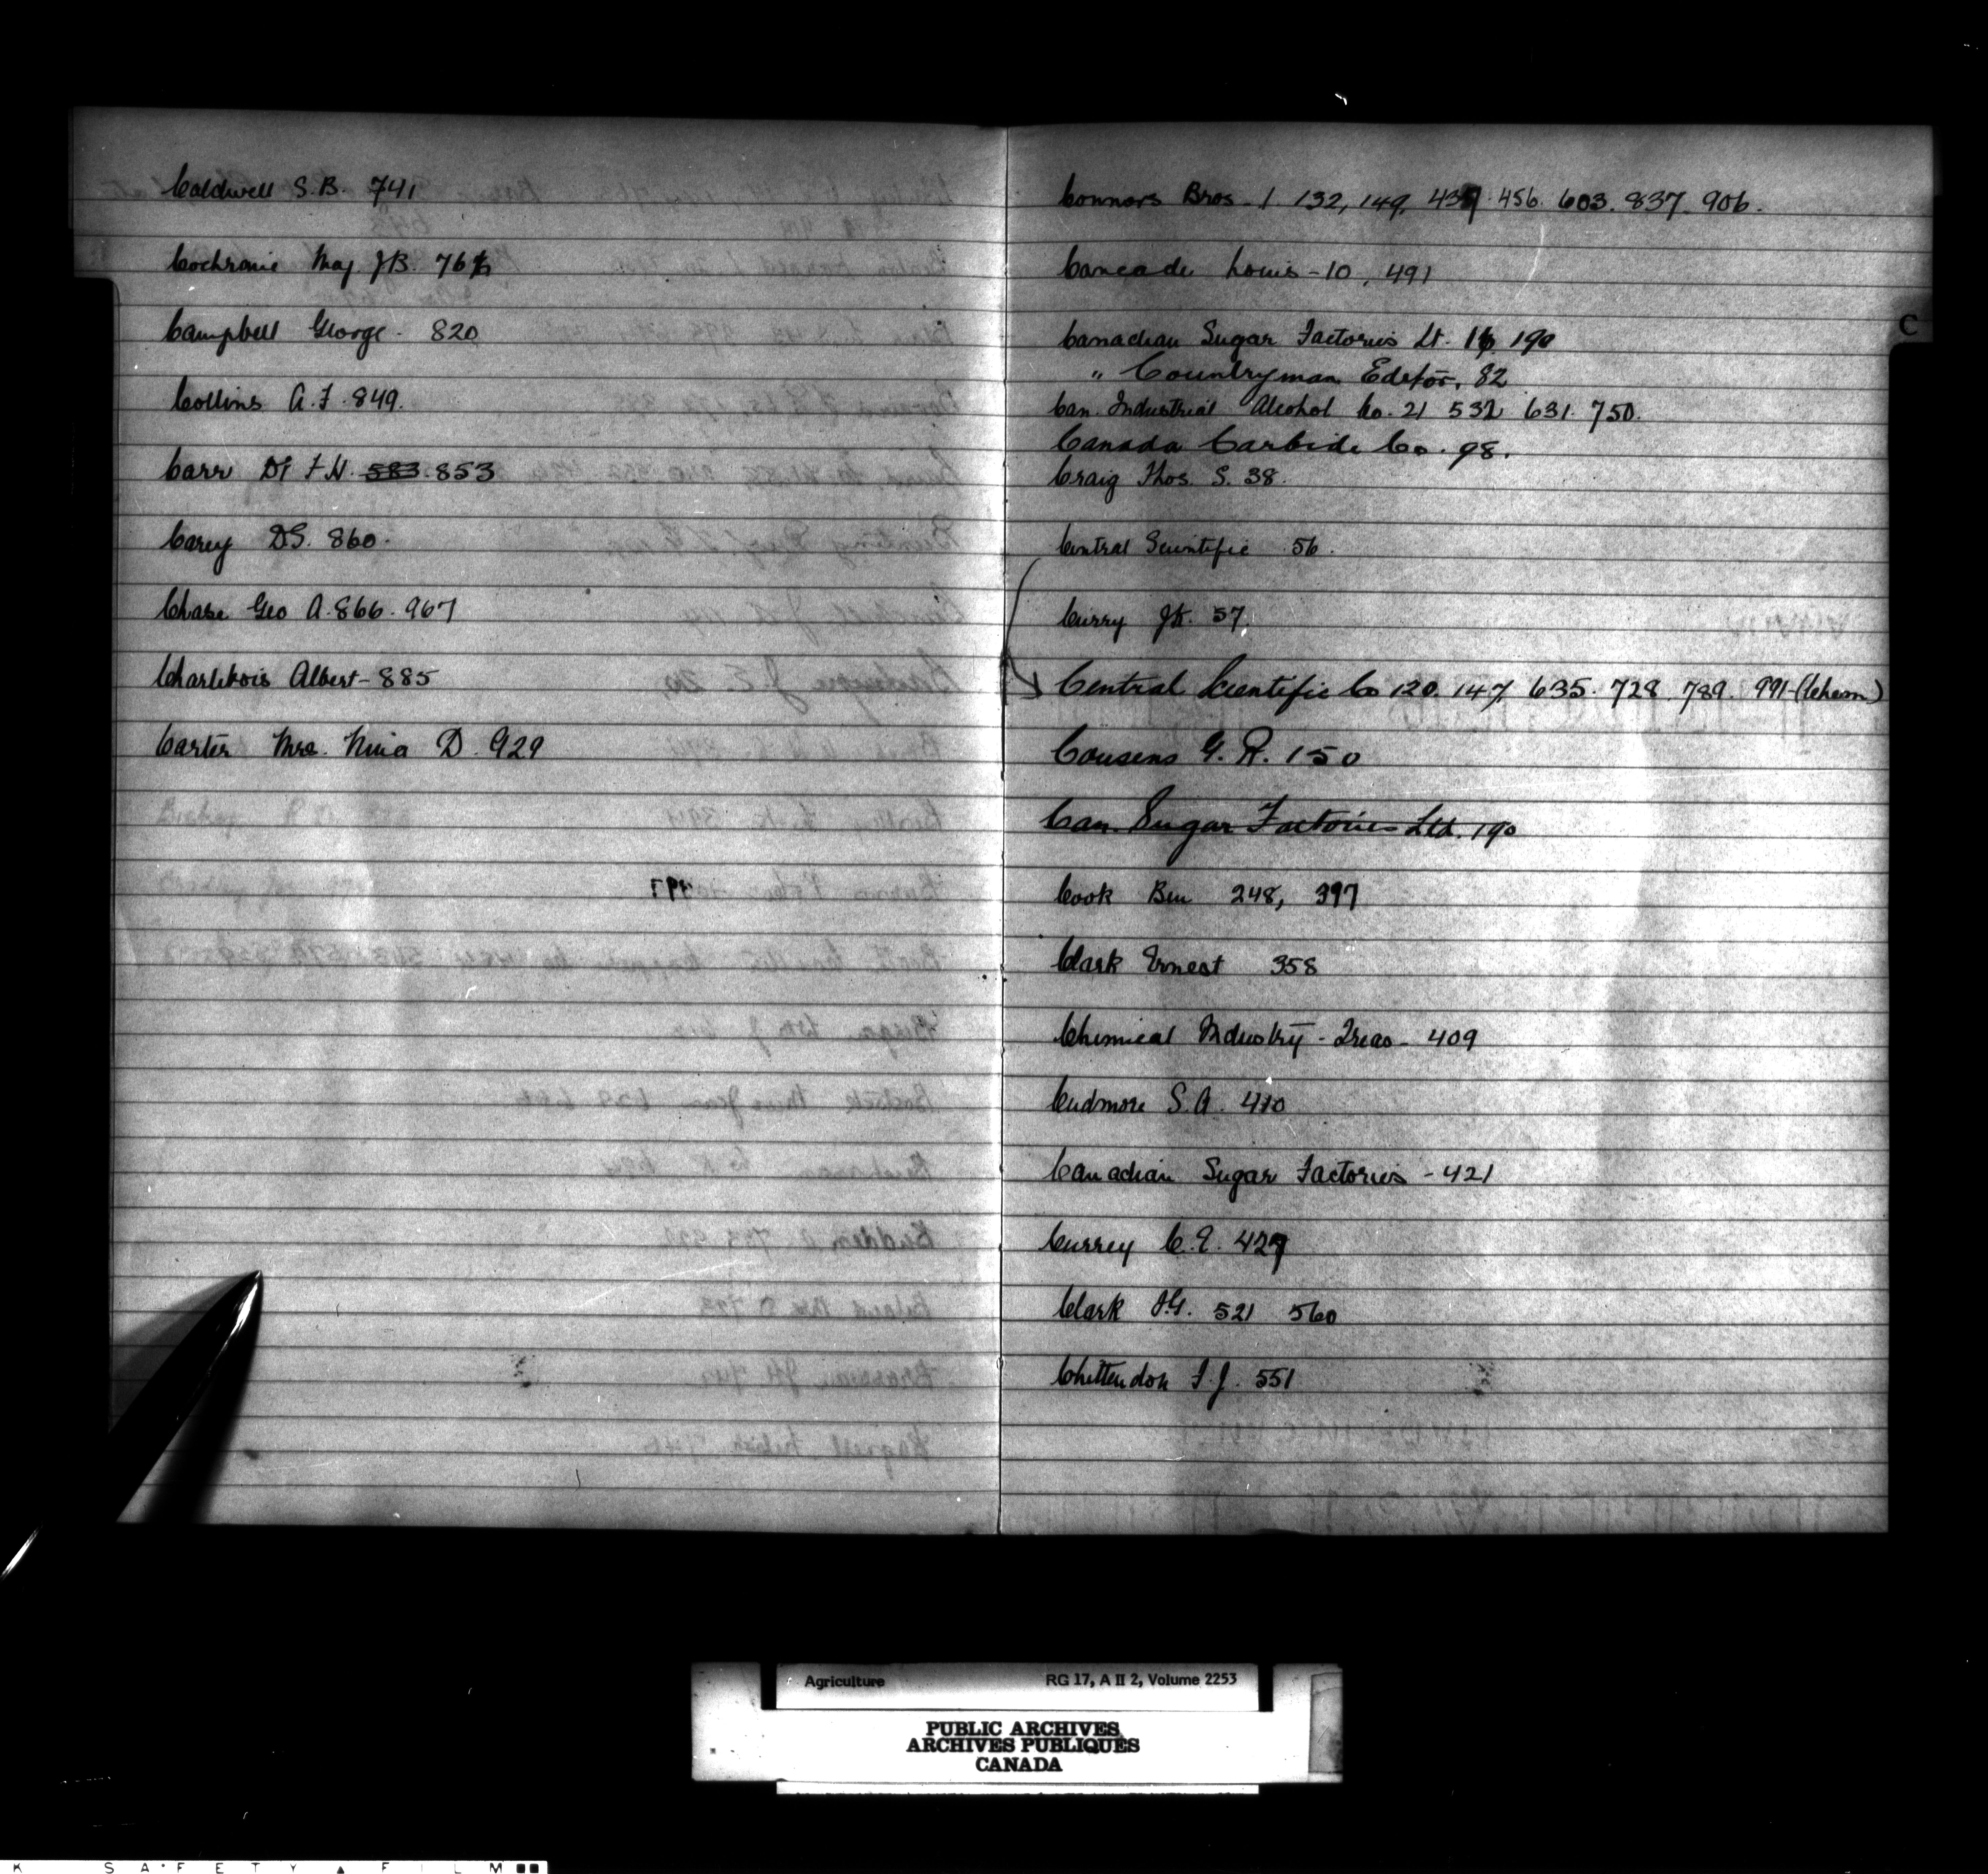 Caldwell S.B. 741
Cochrane Maj. J.B. 764
Campbell George - 820
Collins A.F. 849.
Carr Dr F.H. 583. 853
Carey D.S. 860.
Chase Geo A. 866. 967
Charlebois Albert - 885
Carter Mrs. Nina D. 929
C
Connors Bros - 1. 132, 149, 437. 456. 603. 837. 906.
Louis - 10, 491
Canadian Sugar Factories Lt. 16 190
" Countryman Editor, 82
Can. Industrial Alcohol Co. 21 532 631. 750.
Canada Carbide Co. 98.
Craig Thos. S. 38.
Central Scientific 56.
Curry J.K. 57.
Central Scientific Co 120. 147, 635. 728. 789. 991-(Chem)
Cousens G. R. 150
Can. Sugar Factories Ltd. 190
Cook Ben 248, 397
Clark Ernest 358
Chemical Industry - Treas - 409
Cudmore S.A. 410
Canadian Sugar Factories - 421
Currey C.E. 427
Clark 521 560
Chittenden F.J. 551
Agriculture RG 17, A II 2, Volume 2253
PUBLIC ARCHIVES
ARCHIVES PUBLIQUES
CANADA
K SAFETY ▲ FILM